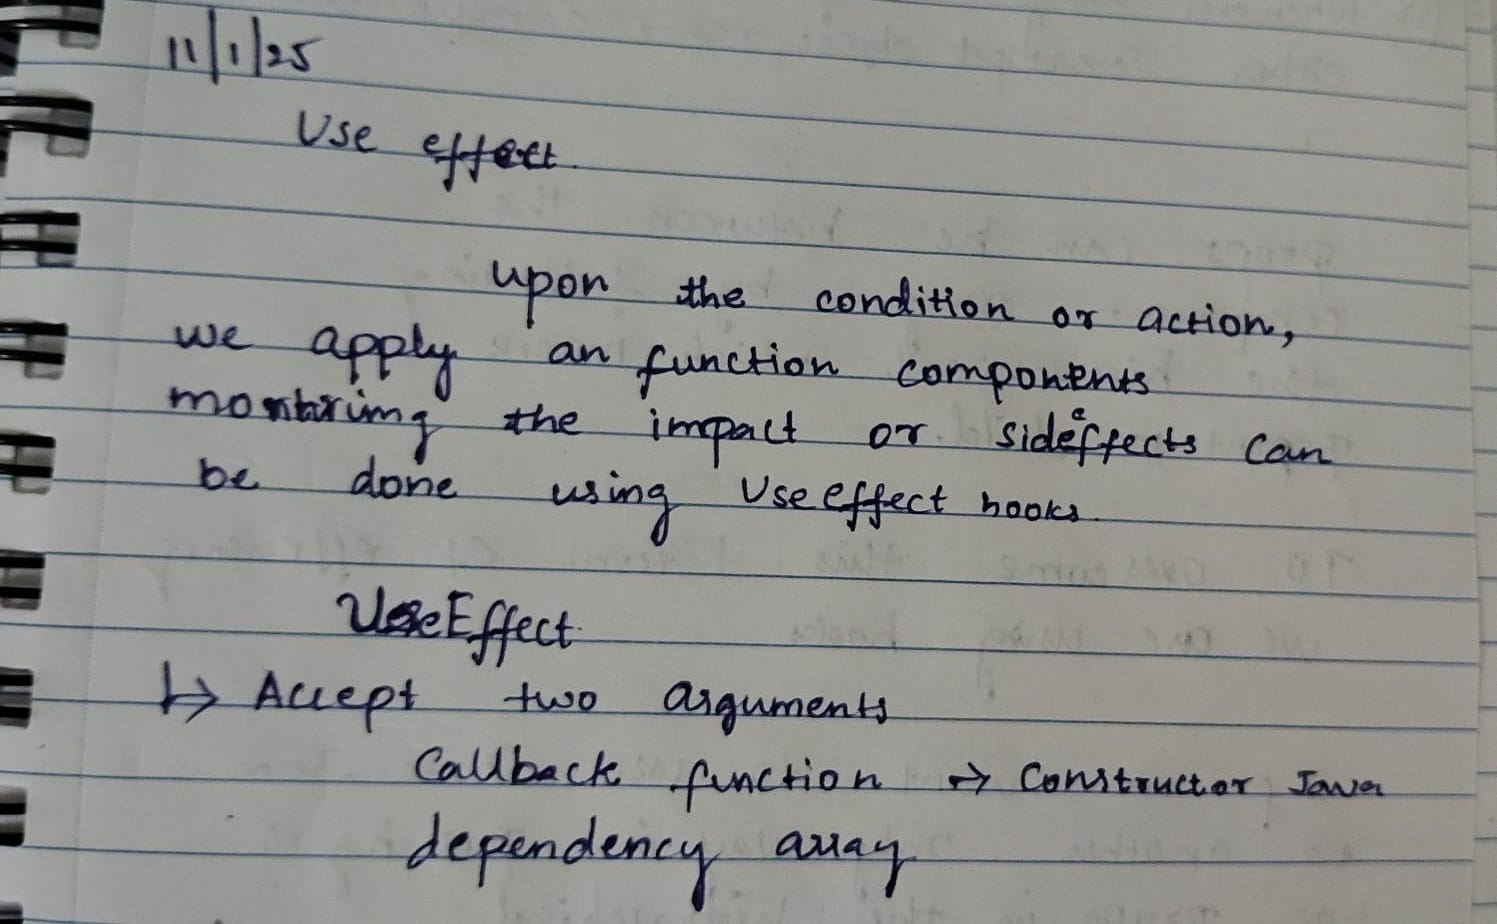 11/1/25
Use effect.
upon the condition or action,
we apply an function components
montoring the impact or sideeffects can
be done using Useeffect hooks.
UseEffect
↳ Accept two arguments
Callback function → Constructor Java
dependency array